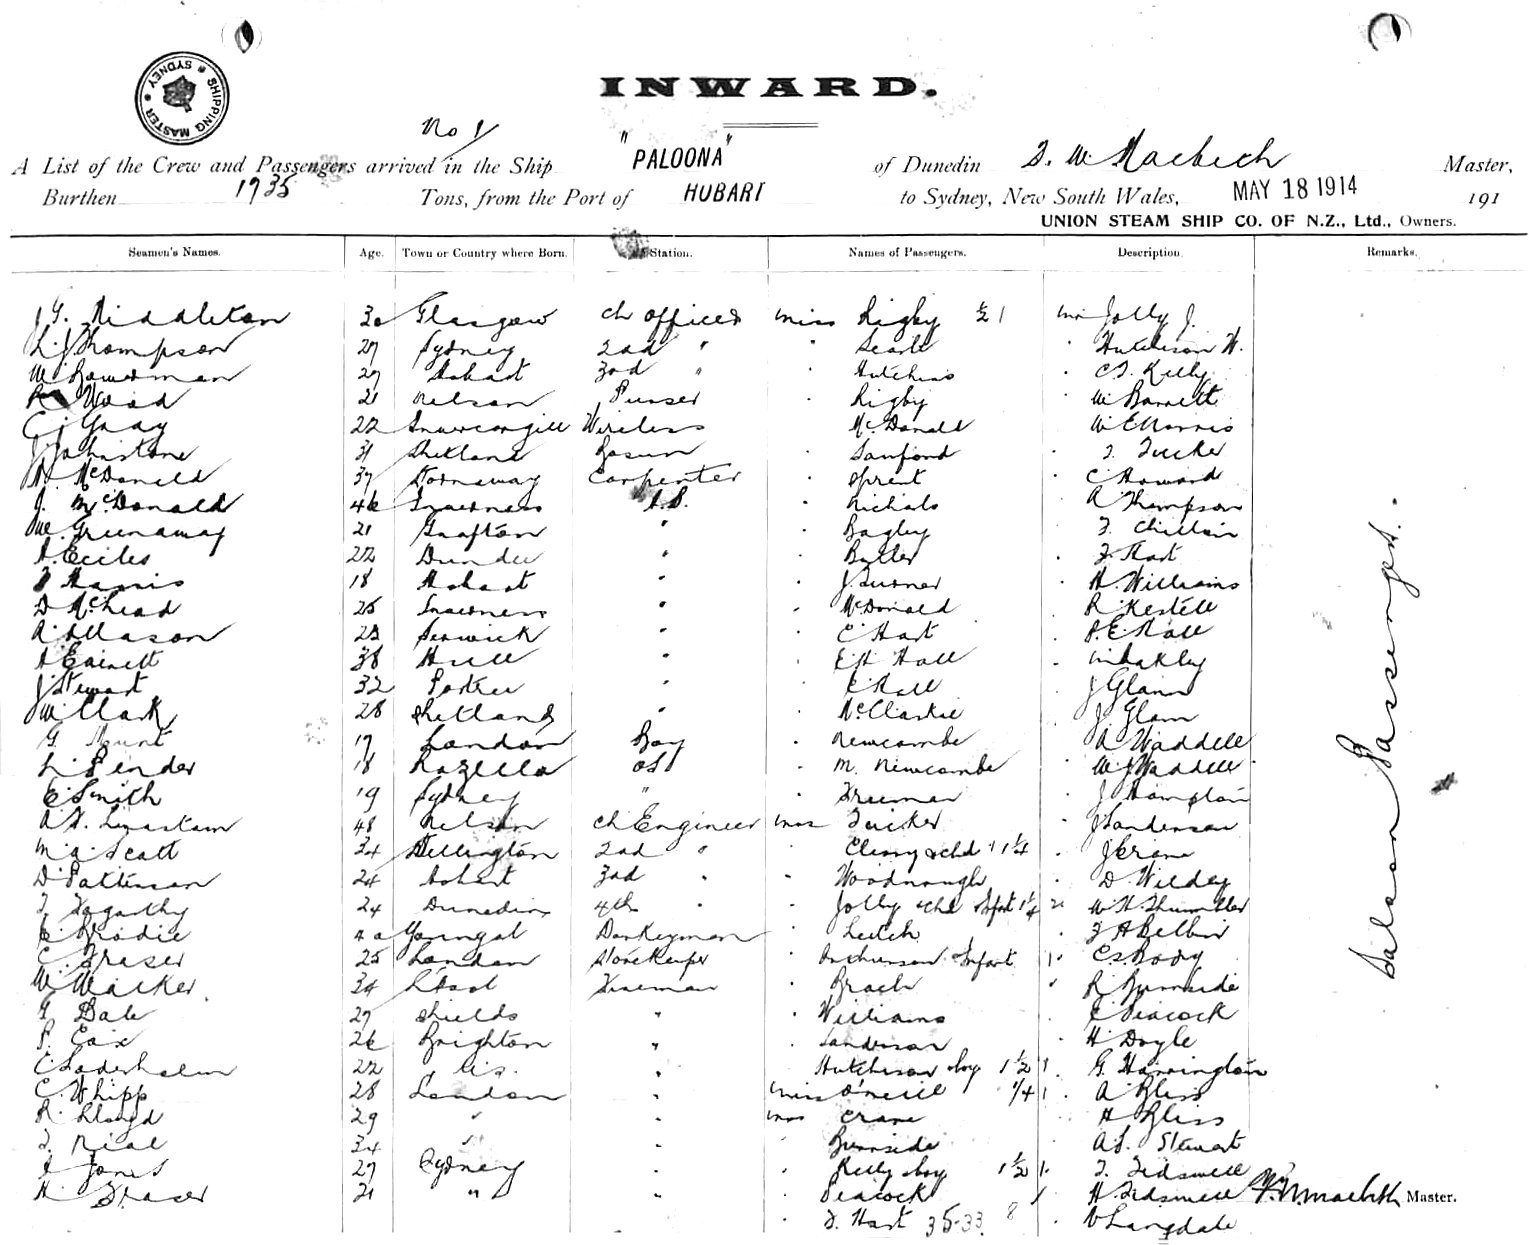 SHIPPING MASTER * SYDNEY *
INWARD.
No 1
A List of the Crew and Passengers arrived in the Ship "PALOONA" of Dunedin Master,
Burthen 1735 Tons, from the Port of HOBART to Sydney, New South Wales, MAY 18 1914 191
UNION STEAM SHIP CO. OF N.Z., Ltd., Owners.
Seamen's Names. Age. Town or Country where Born. Station. Names of Passengers. Description. Remarks.
J G. Middleton 30 Glasgow Ch officer Miss Rigby ½ 1 Mr Jolly J.
L. J Thompson 27 Sydney 2nd " " Searle " Hutchison W.
W. Bowerman 27 Hobart 3rd " " Hutchins " C J. Kelly
R Wood 21 Nelson Purser " Rigby " W Barrett
C J Gray 22 Invercargill Wireless McDonald W E Norris
J Johnstone 31 Shetland Bosun " Sanford " J. Tucker
McDonald 37 Stornaway Carpenter " Sprent " C Howard
J. McDonald 46 Inverness A.B. " Nichols A Thompson
W. Greenaway 21 Grafton " " Bagley
A Eccles 22 Dundee " " Butler " F Hart
Harris 18 Hobart " J Turner " H Williams
D McLead 25 Inverness " " McDonald " R Kestell
R Mason 23 " " C Hart E. Hall
38 Hull " " E H Hall
J Stewart 32 Portree " " " J Glann
W Clark 28 Shetland " " McClarkie J. Glann
G Mount 17 London Boy " Newcombe A Waddell
L. Pender 18 Rozella OS " M. Newcombe " W J Waddell
E Smith 19 Sydney " " Freeman " J Hampton
48 Nelson Ch Engineer Mrs Tucker " J Sanderson
M. A. Scott 34 Wellington 2nd " " chd 1 ¼ " J Crane
D Patterson 24 Hobart 3rd " " Woodnough " D. Wilday
J Fogarthy 24 Dunedin 4th " " Jolly chd Infant 1 ¼
Brodie 40 Donkeyman " Leitch "
C. Fraser 25 London Storekeeper " Infant 1 " C S Body
W Walker 34 Fireman " Brach " R Burnside
Dale 27 Shields " " Williams " Peacock
P. Cox 26 Brighton " " Sanderson " H Doyle
C Soderholm 22 " " Hutchison boy 1 ½ G. Harrington
C. Whipp 28 London " Miss O'neill ¼ 1 " A Bliss
R. Lloyd 29 " " Mrs Crane H Bliss
J. Neal 34 " " " Burnside A J. Stewart
Jones 27 Sydney " " Kelly boy 1 ½ 1 " J. Tidswell
H. Fraser 21 " " " Peacock " H. Tidswell Master.
" J. Hart 35-33 8 " V Langdale
Saloon Passengers.